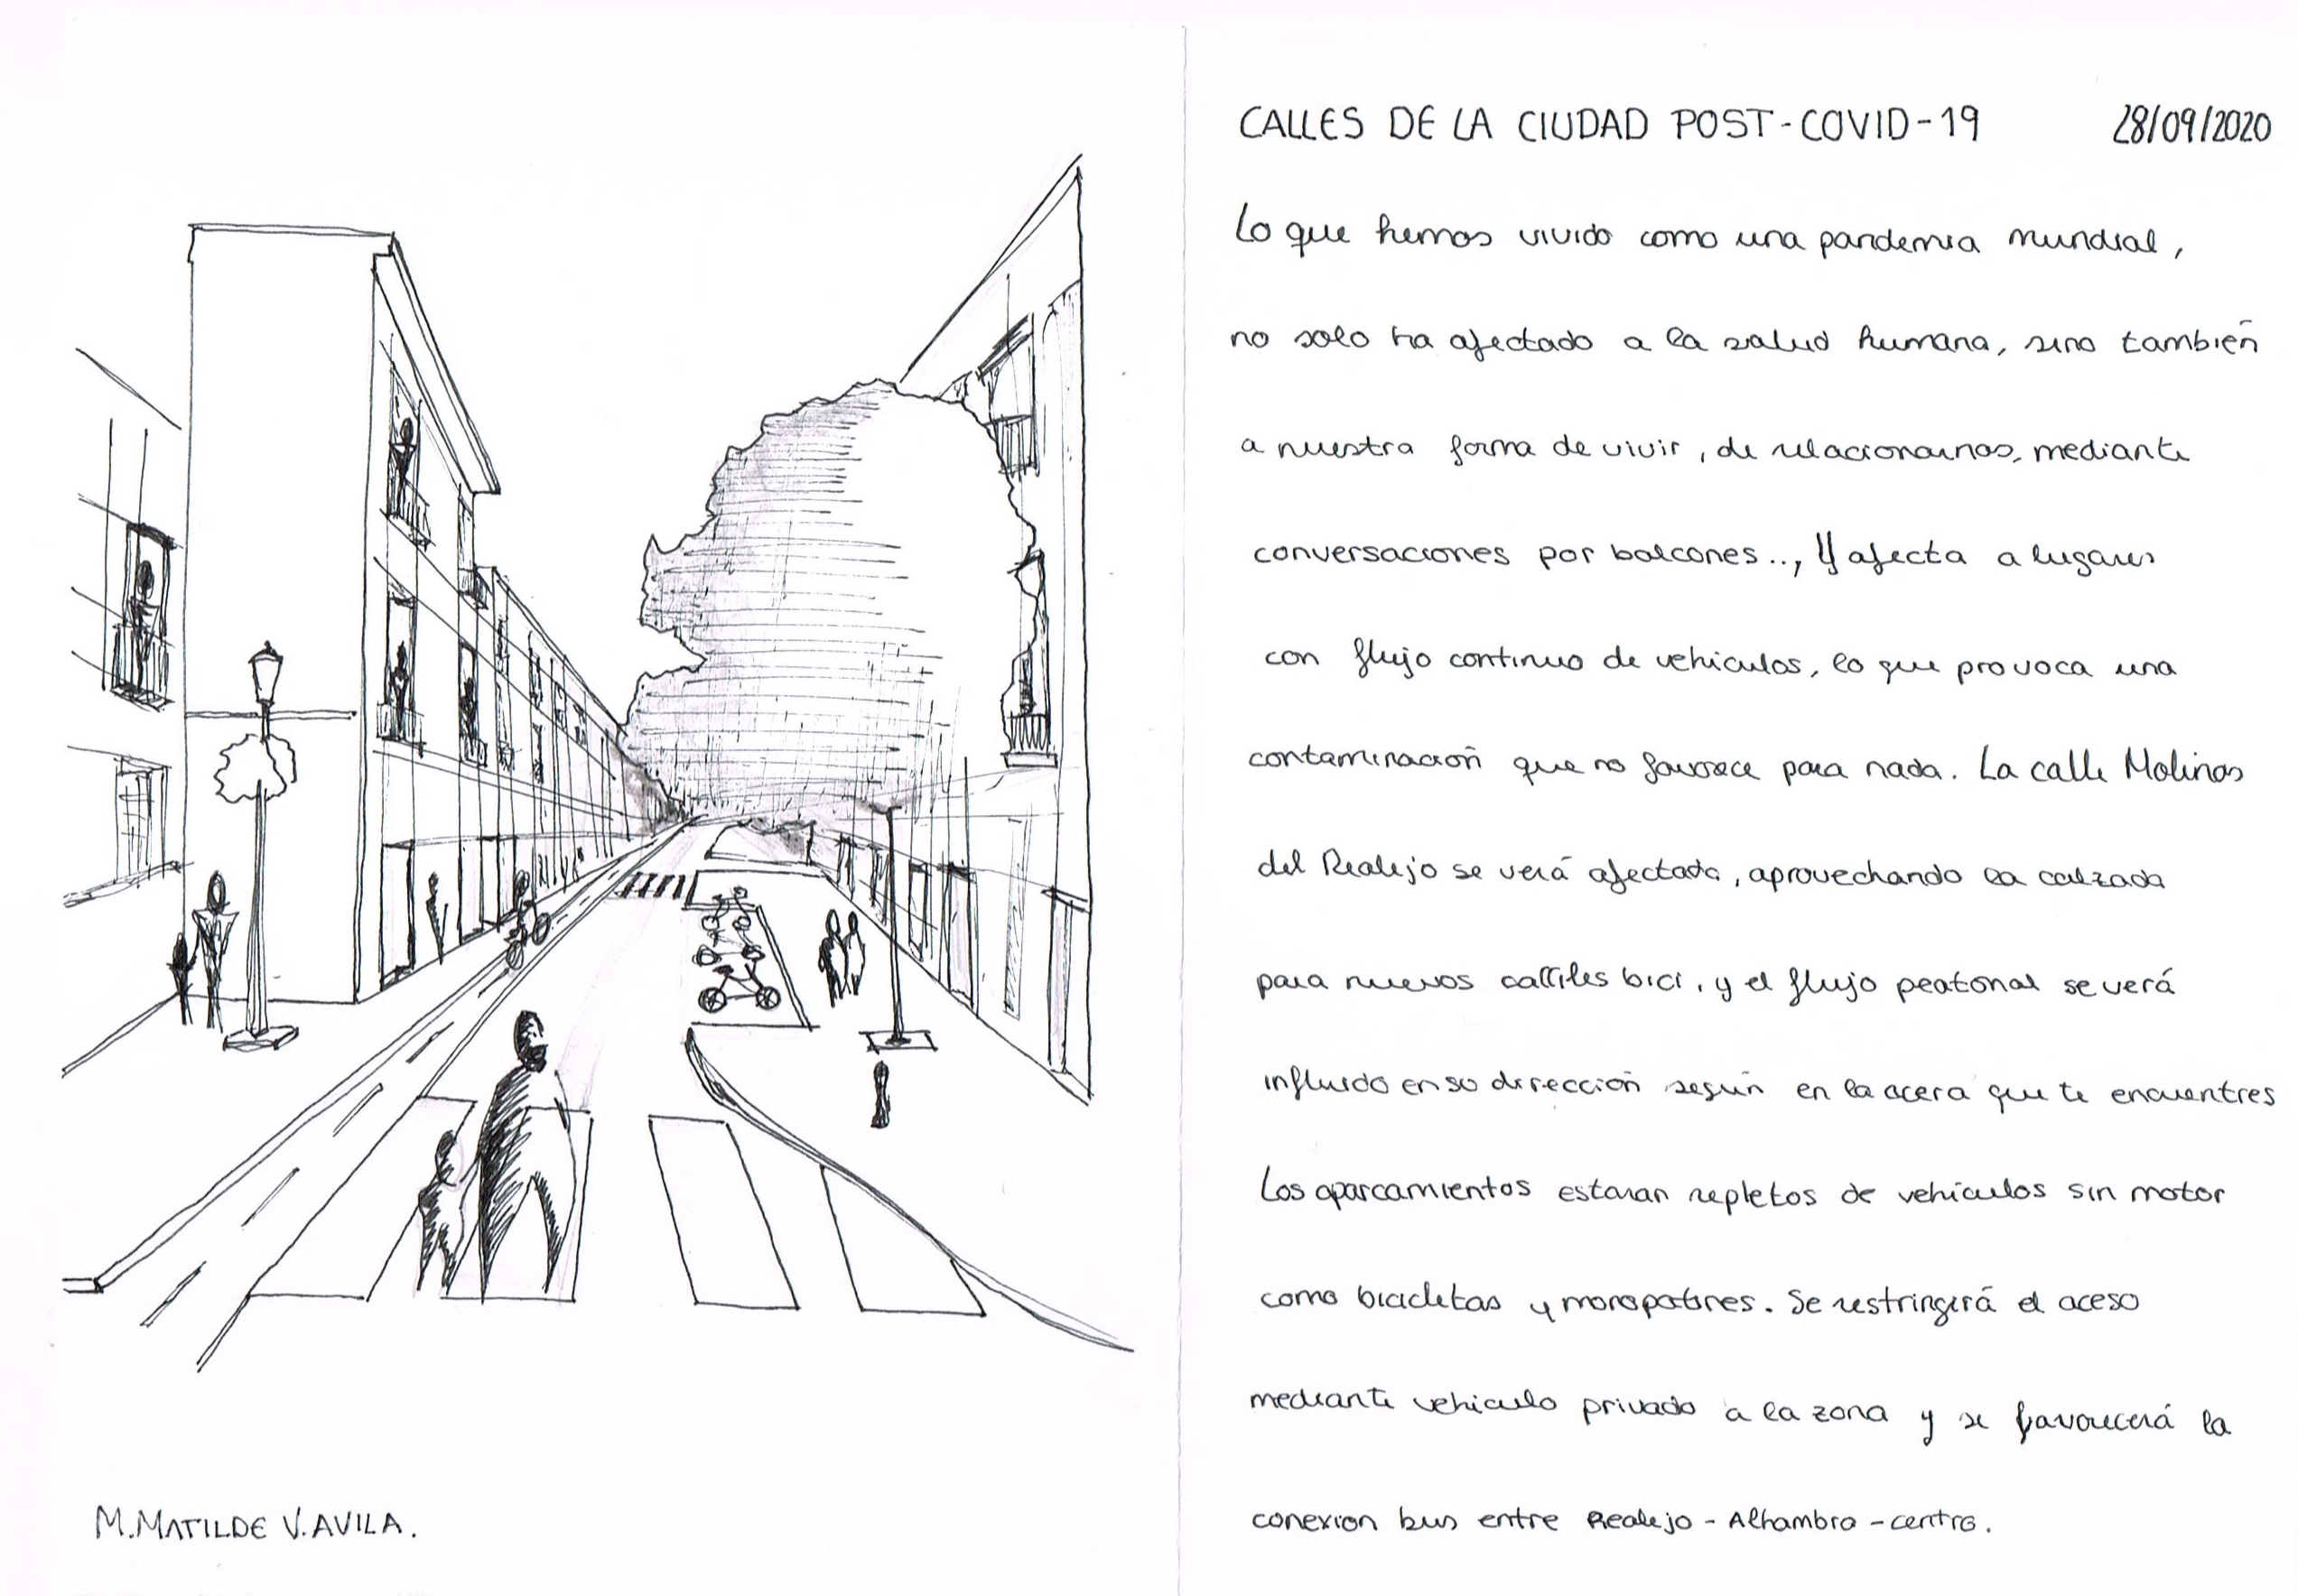 CALLES DE LA CIUDAD POST-COVID-19 28/09/2020
Lo que hemos vivido como una pandemia mundial,
no solo ha afectado a la salud humana, sino también
a nuestra forma de vivir, de relacionarnos, mediante
conversaciones por balcones.., Y afecta a lugares
con flujo continuo de vehiculos, lo que provoca una
contaminación que no favorece para nada. La calle Molinos
del Realejo se verá afectada, aprovechando la calzada
para nuevos carriles bici, y el flujo peatonal se verá
influido en su dirección según en la acera que te encuentres
Los aparcamientos estaran repletos de vehiculos sin motor
como bicicletas y monopatines. Se restringirá el aceso
mediante vehiculo privado a la zona y se favorecerá la
conexion bus entre Realejo - Alhambra - centro.
M. MATILDE V. AVILA.